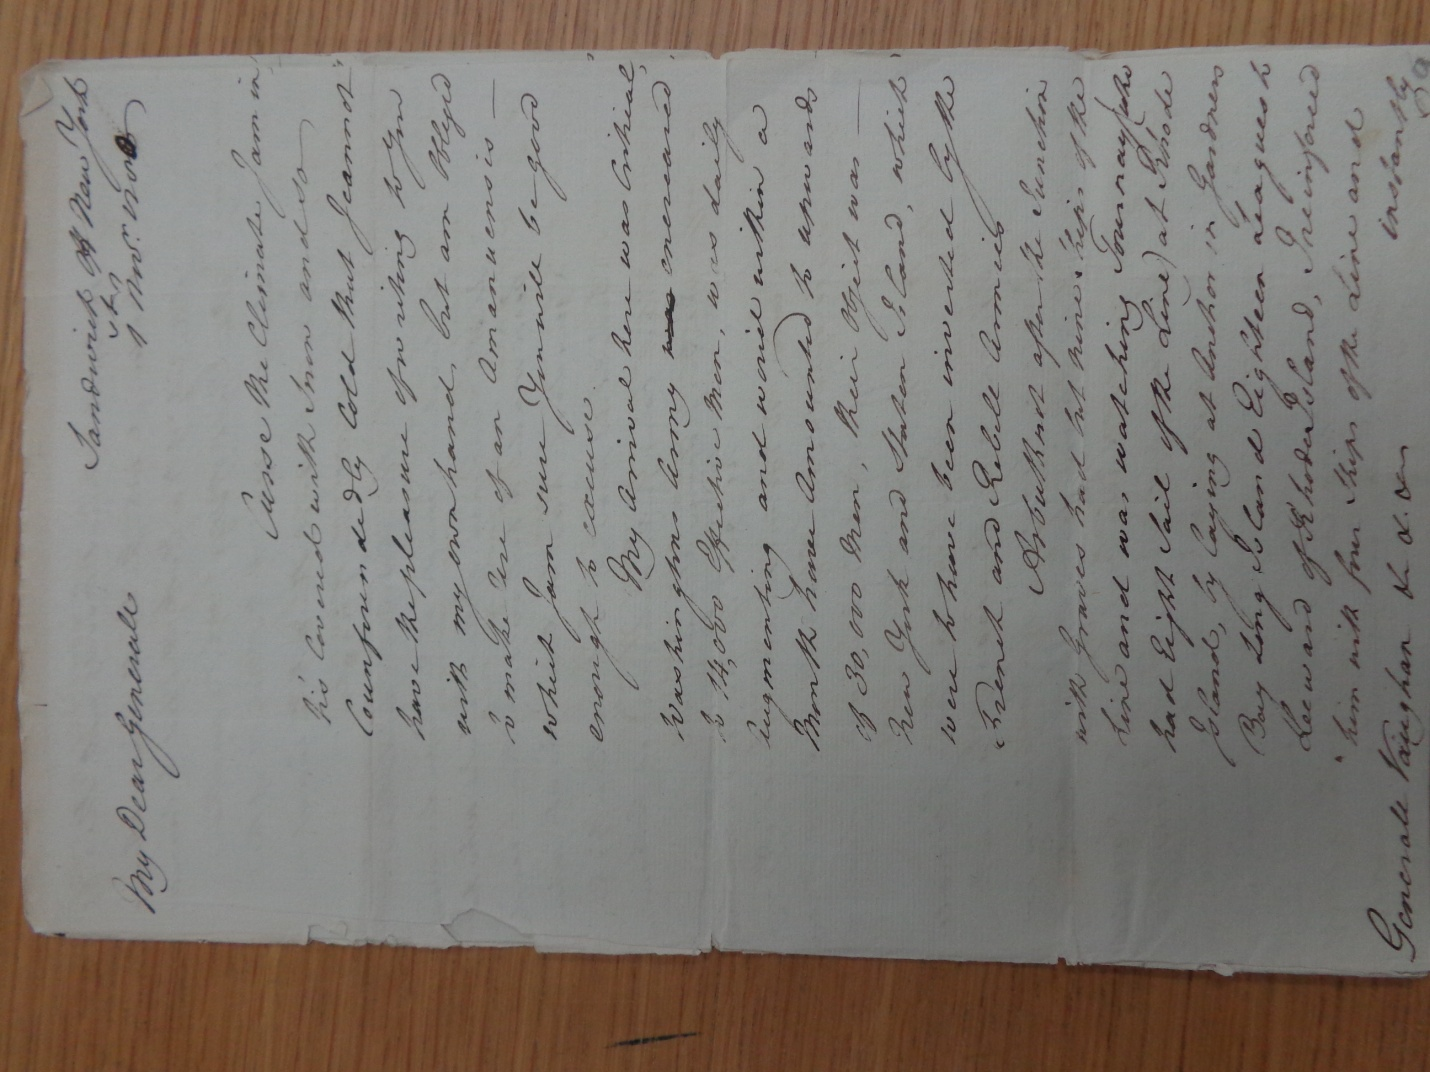 Sandwich off New York
1st Novr. 1780
My Dear Generall
Curse the Climate I am in
tis Covered with Snow and so
Counfoundedly Cold that I cannot
have the pleasure of writing to You
with my own hand, but am Obleged
to make Use of an Amanuensis —
which I am sure You will be good
enough to excuse.
My Arrival here was Critical,
Washingtons Army encreased
to 14,000 Effective Men, was daily
augmenting and would within a
Month have Amounted to upwards
of 30,000 Men, their Object was —
New York and Staten Island, which
were to have been invested by the
French and Rebell Armies
Arbuthnot after the Junction
with Graves had but nine Ships of the
Line and was watching Tournay (who
had Eight Sail of the Line) at Rhode
Island, by laying at Anchor in Gardners
Bay Long Island Eighteen Leagues to
Leeward of Rhode Island, I reinforced
him with four Ships of the Line and
instantly
Generall Vaughan &c. &c. &c.